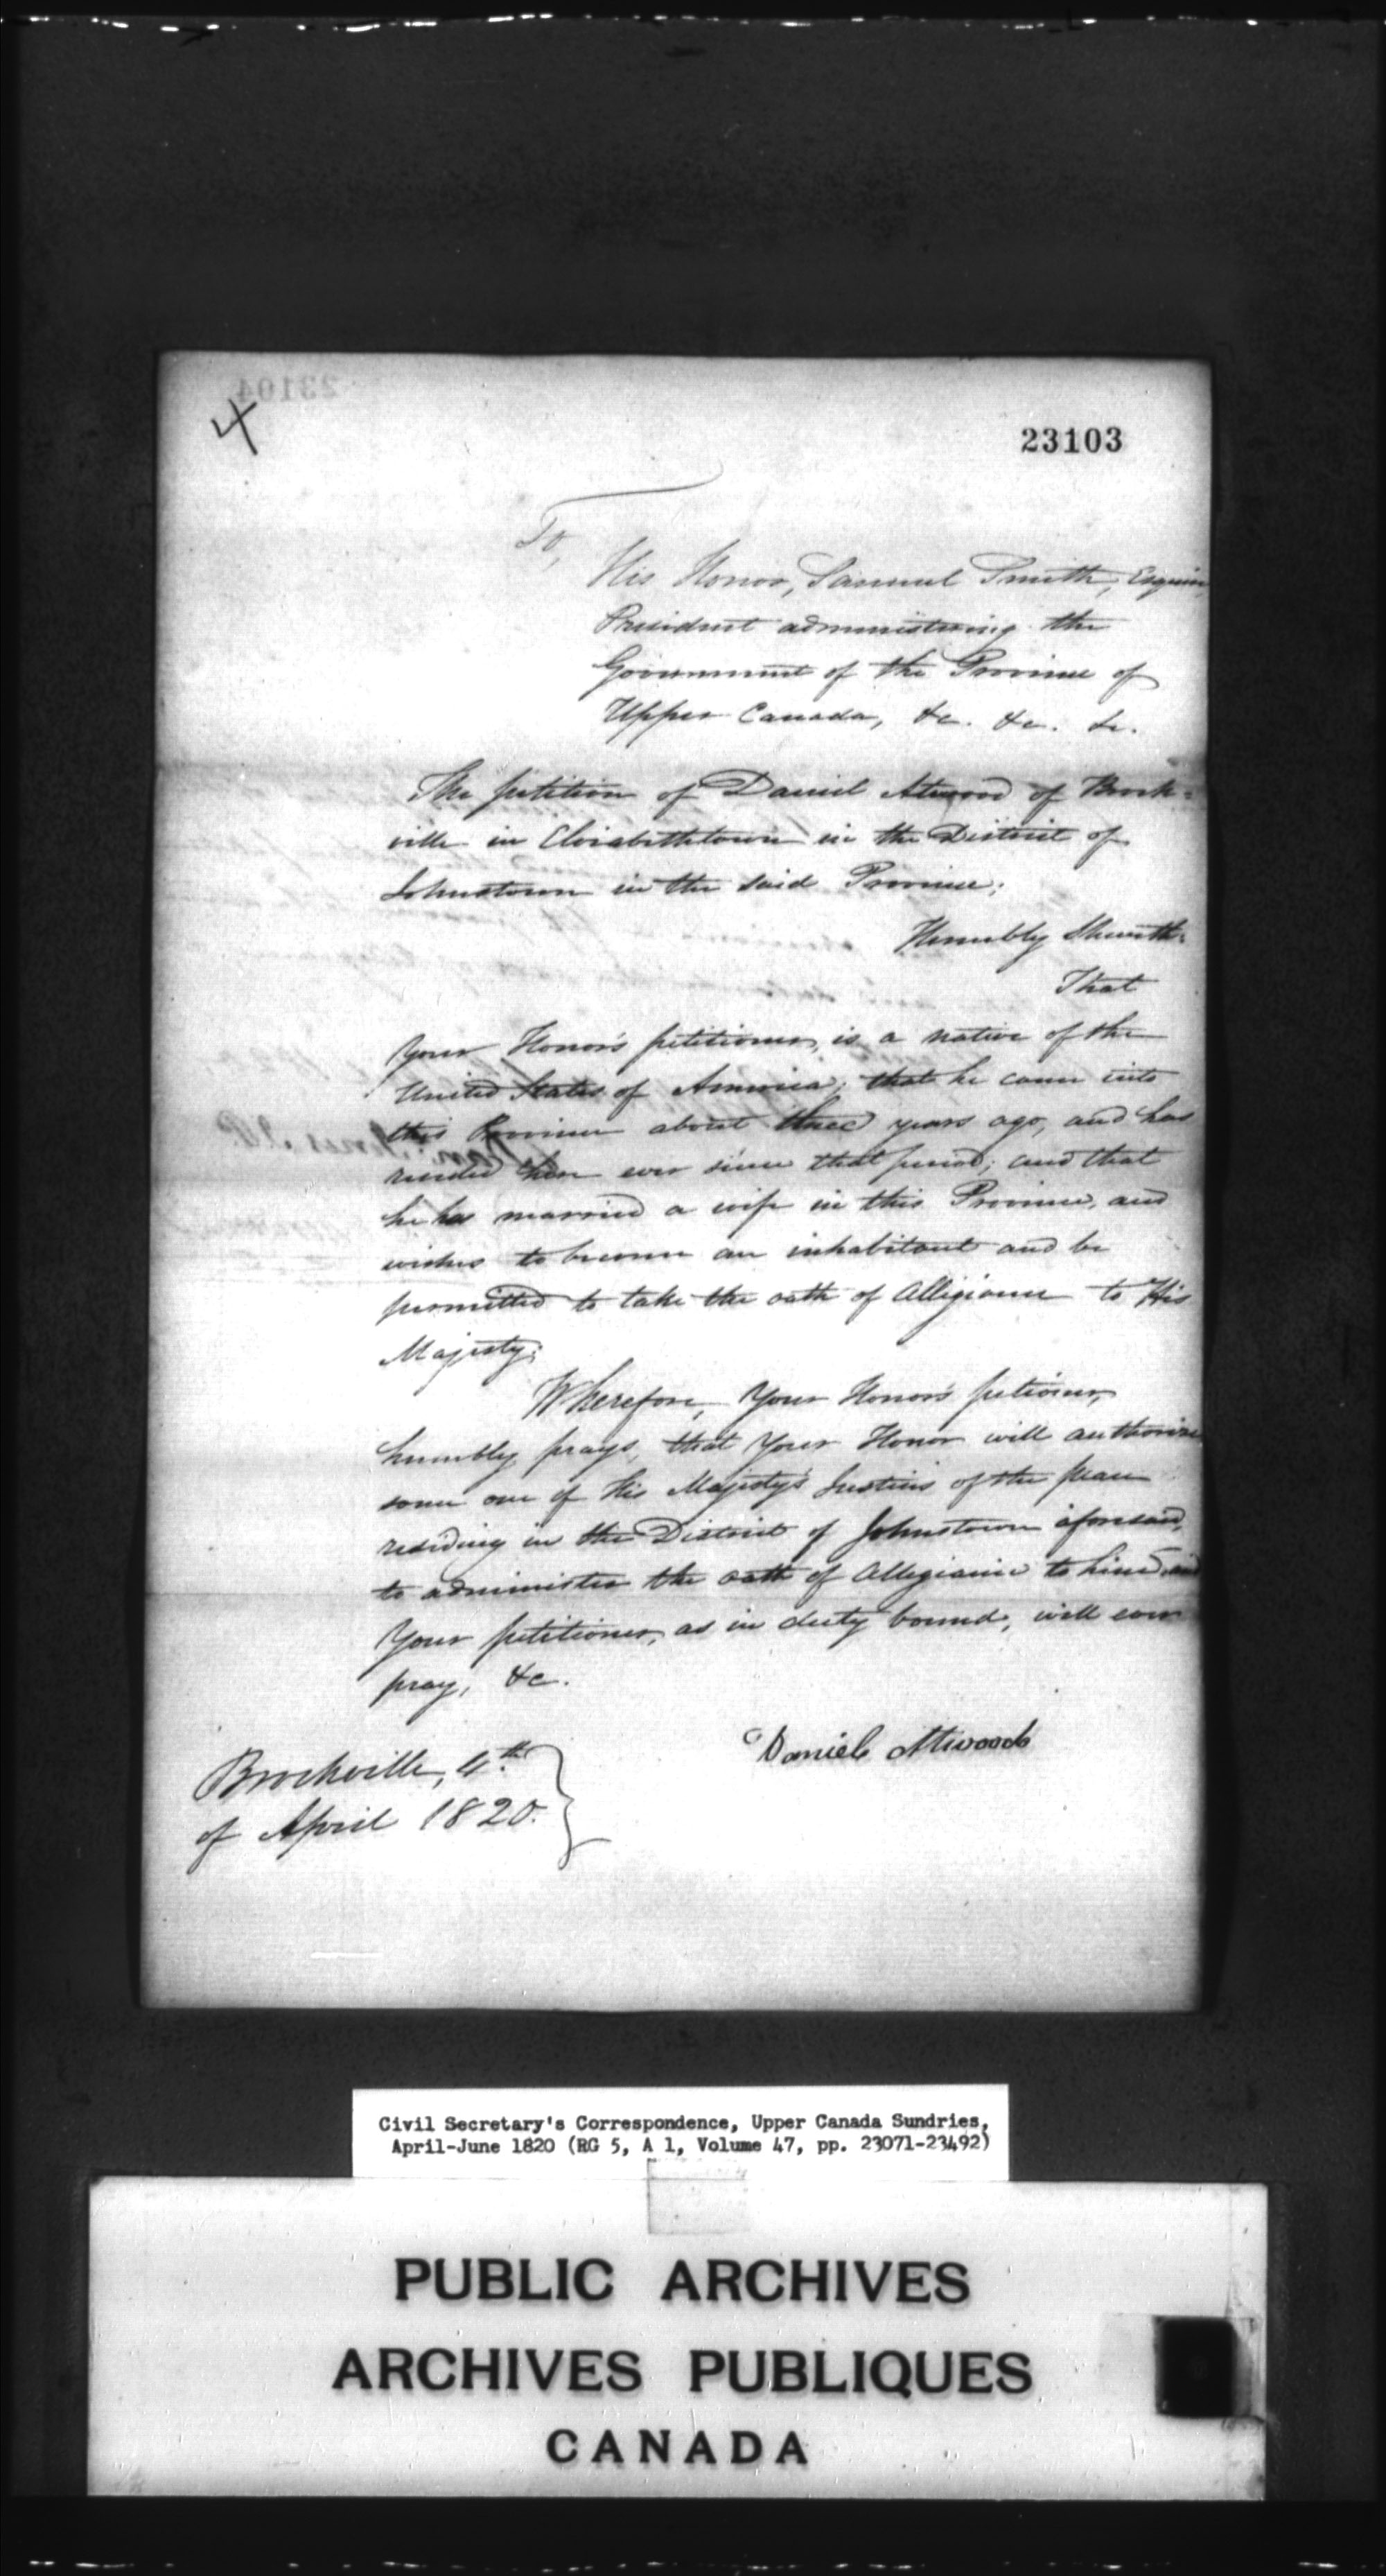 4
23103
To,
His Honor, Samuel Smith, Esquire
President administering the
Government of the Province of
Upper Canada, &c. &c. &c.
The petition of Daniel Atwood of Brock=
ville in Elizabethtown in the District of
Johnstown in the said Province;
Humbly Sheweth:
That
Your Honor's petitioner, is a native of the
United States of America; that he came into
this Province about three years ago, and has
resided here ever since that period; and that
he has married a wife in this Province, and
wishes to become an inhabitant and be
permitted to take the oath of Allegiance to His
Majesty;
Wherefore, Your Honor's petioner,
humbly prays, that Your Honor will authorize
some one of His Majesty's Justices of the peace
residing in the District of Johnstown aforesaid,
to administer the oath of Allegiance to him and
Your petitioner, as in duty bound, will ever
pray, &c.
Daniel Atwood
Brockville, 4th
of April 1820.
Civil Secretary's Correspondence, Upper Canada Sundries,
April-June 1820 (RG 5, A 1, Volume 47, pp. 23071-23492)
PUBLIC ARCHIVES
ARCHIVES PUBLIQUES
CANADA